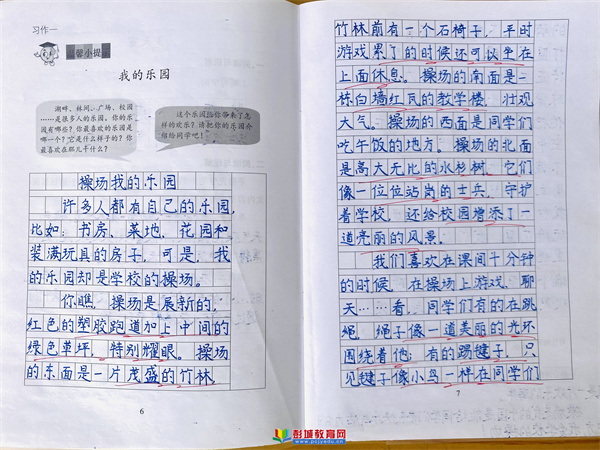 习作一
温馨小提
我的乐园
湖畔、林间、广场、校园
……是很多人的乐园。你的乐
园有哪些？你最喜欢的乐园是
哪一个？它是什么样子的？你
最喜欢在那儿干什么？
这个乐园给你带来了怎
样的欢乐？请把你的乐园介
绍给同学吧！
操场我的乐园
许多人都有自己的乐园，
比如：书房、菜地、花园和
装满玩具的房子，可是，我
的乐园却是学校的操场。
你瞧，操场是展新的，
红色的塑胶跑道加上中间的
绿色草坪，特别耀眼。操场
的东面是一片茂盛的竹林，
6
竹林前有一个石椅子，平时
游戏累了的时候还可以坐在
上面休息。操场的南面是二
栋白墙红瓦的教学楼，壮观
大气。操场的西面是同学们
吃午饭的地方。操场的北面
是高大无比的水杉树，它们
像一位位站岗的士兵，守护
着学校，还给校园增添了一
道亮丽的风景。
我们喜欢在课间十分钟
的时候，在操场上游戏、聊
天……看，同学们有的在跳
绳，绳子像一道美丽的光环
围绕着他；有的踢毽子，只
见毽子像小鸟一样在同学们
7
彭城教育网
www.pcjyedu.cn